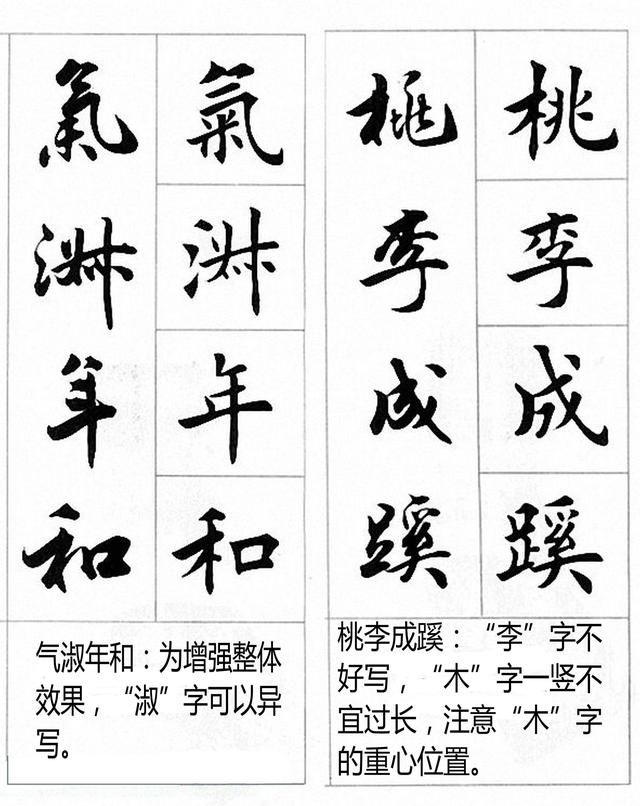 桃李成蹊
桃李成蹊
桃李成蹊：“李”字不
好写，“木”字一竖不
宜过长，注意“木”字
的重心位置。
氣淑年和
氣淑年和
气淑年和：为增强整体
效果，“淑”字可以异
写。